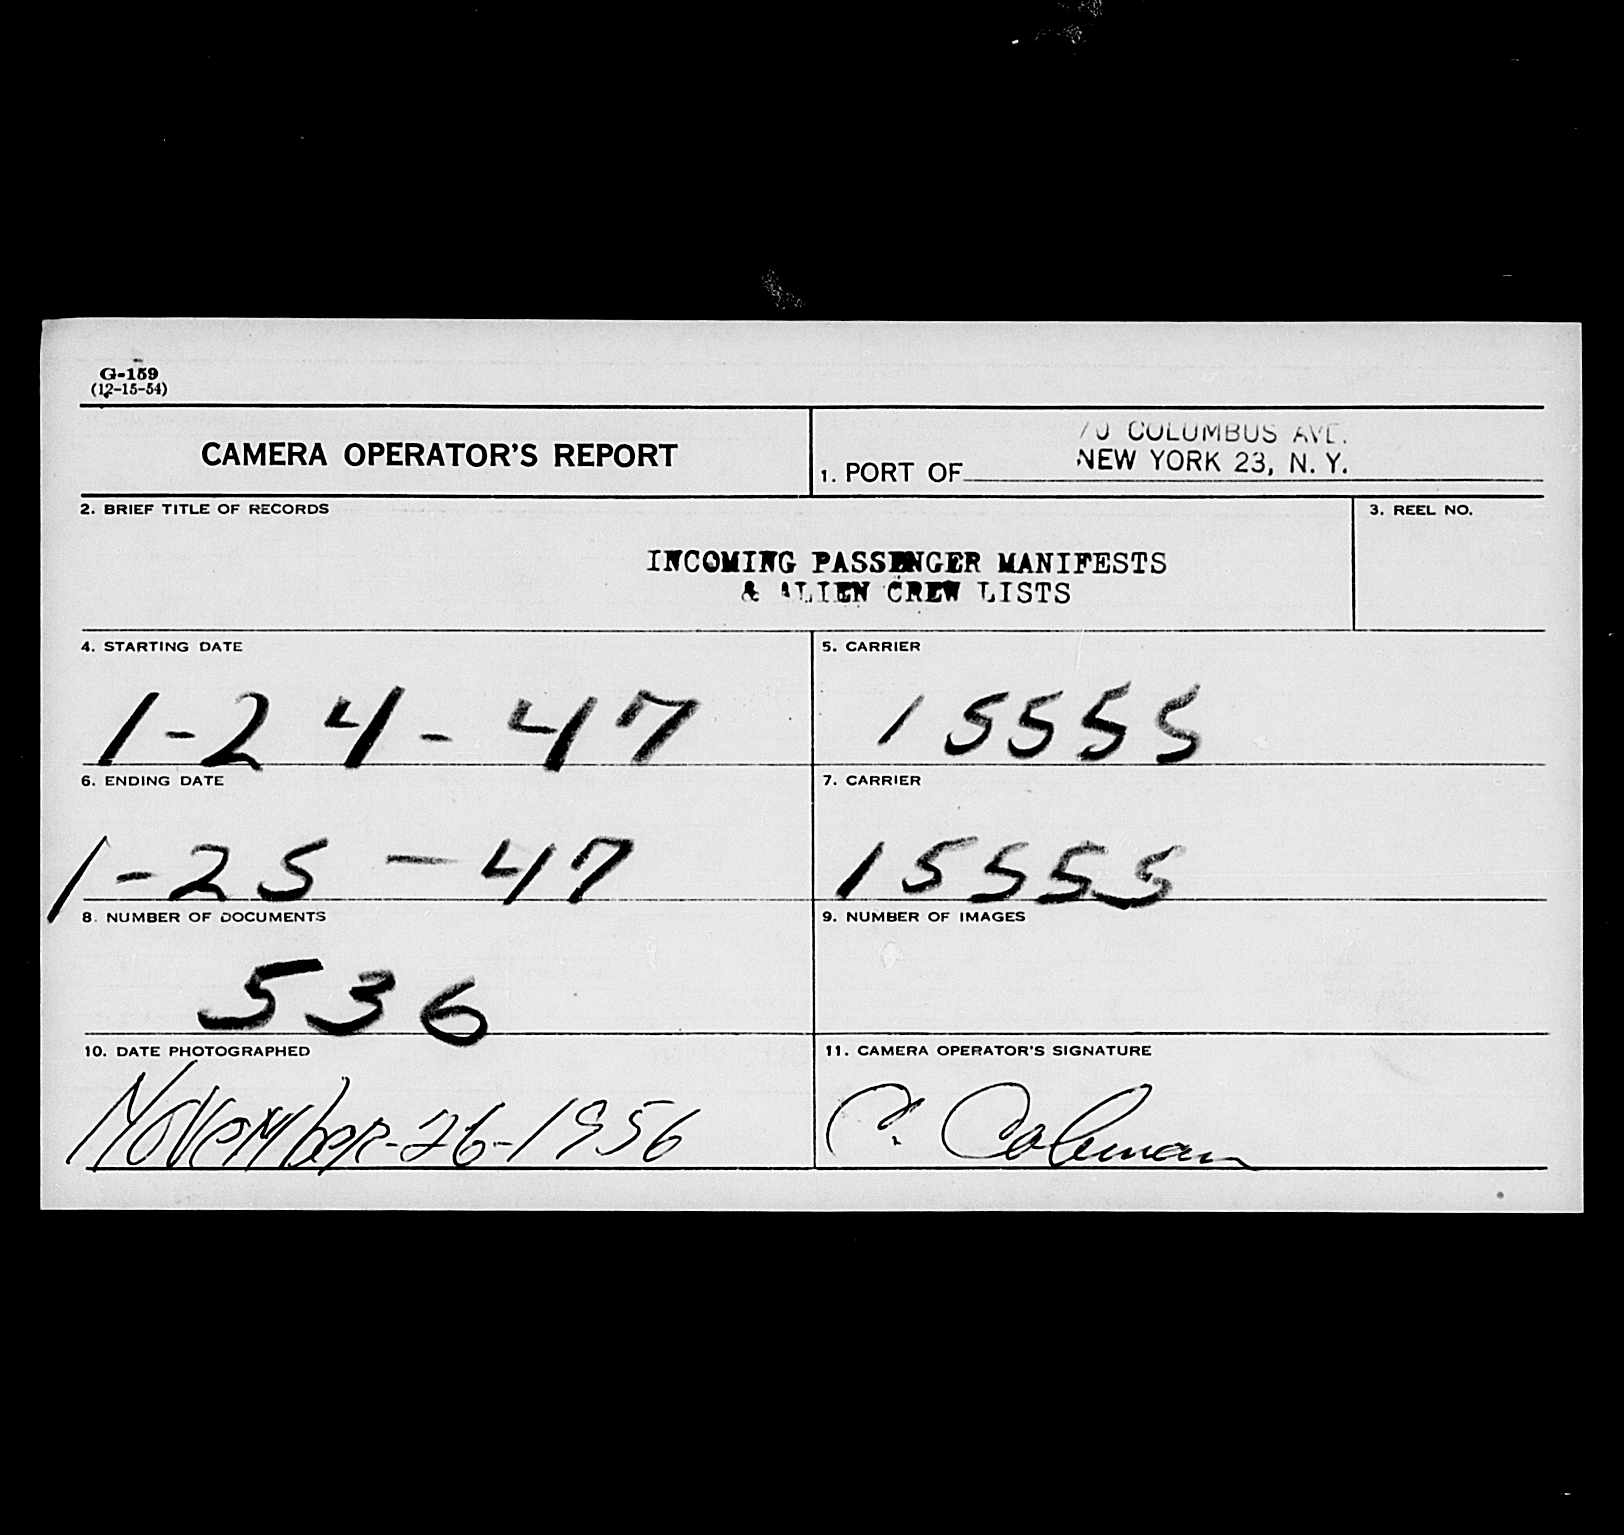 G-159
(12-15-54)
CAMERA OPERATOR'S REPORT
70 COLUMBUS AVE.
1. PORT OF NEW YORK 23, N. Y.
2. BRIEF TITLE OF RECORDS
3. REEL NO.
INCOMING PASSENGER MANIFESTS
& ALIEN CREW LISTS
4. STARTING DATE
5. CARRIER
1-24-47
15555
6. ENDING DATE
7. CARRIER
1-25-47
15555
8. NUMBER OF DOCUMENTS
9. NUMBER OF IMAGES
536
10. DATE PHOTOGRAPHED
11. CAMERA OPERATOR'S SIGNATURE
November-26-1956
C. Coleman